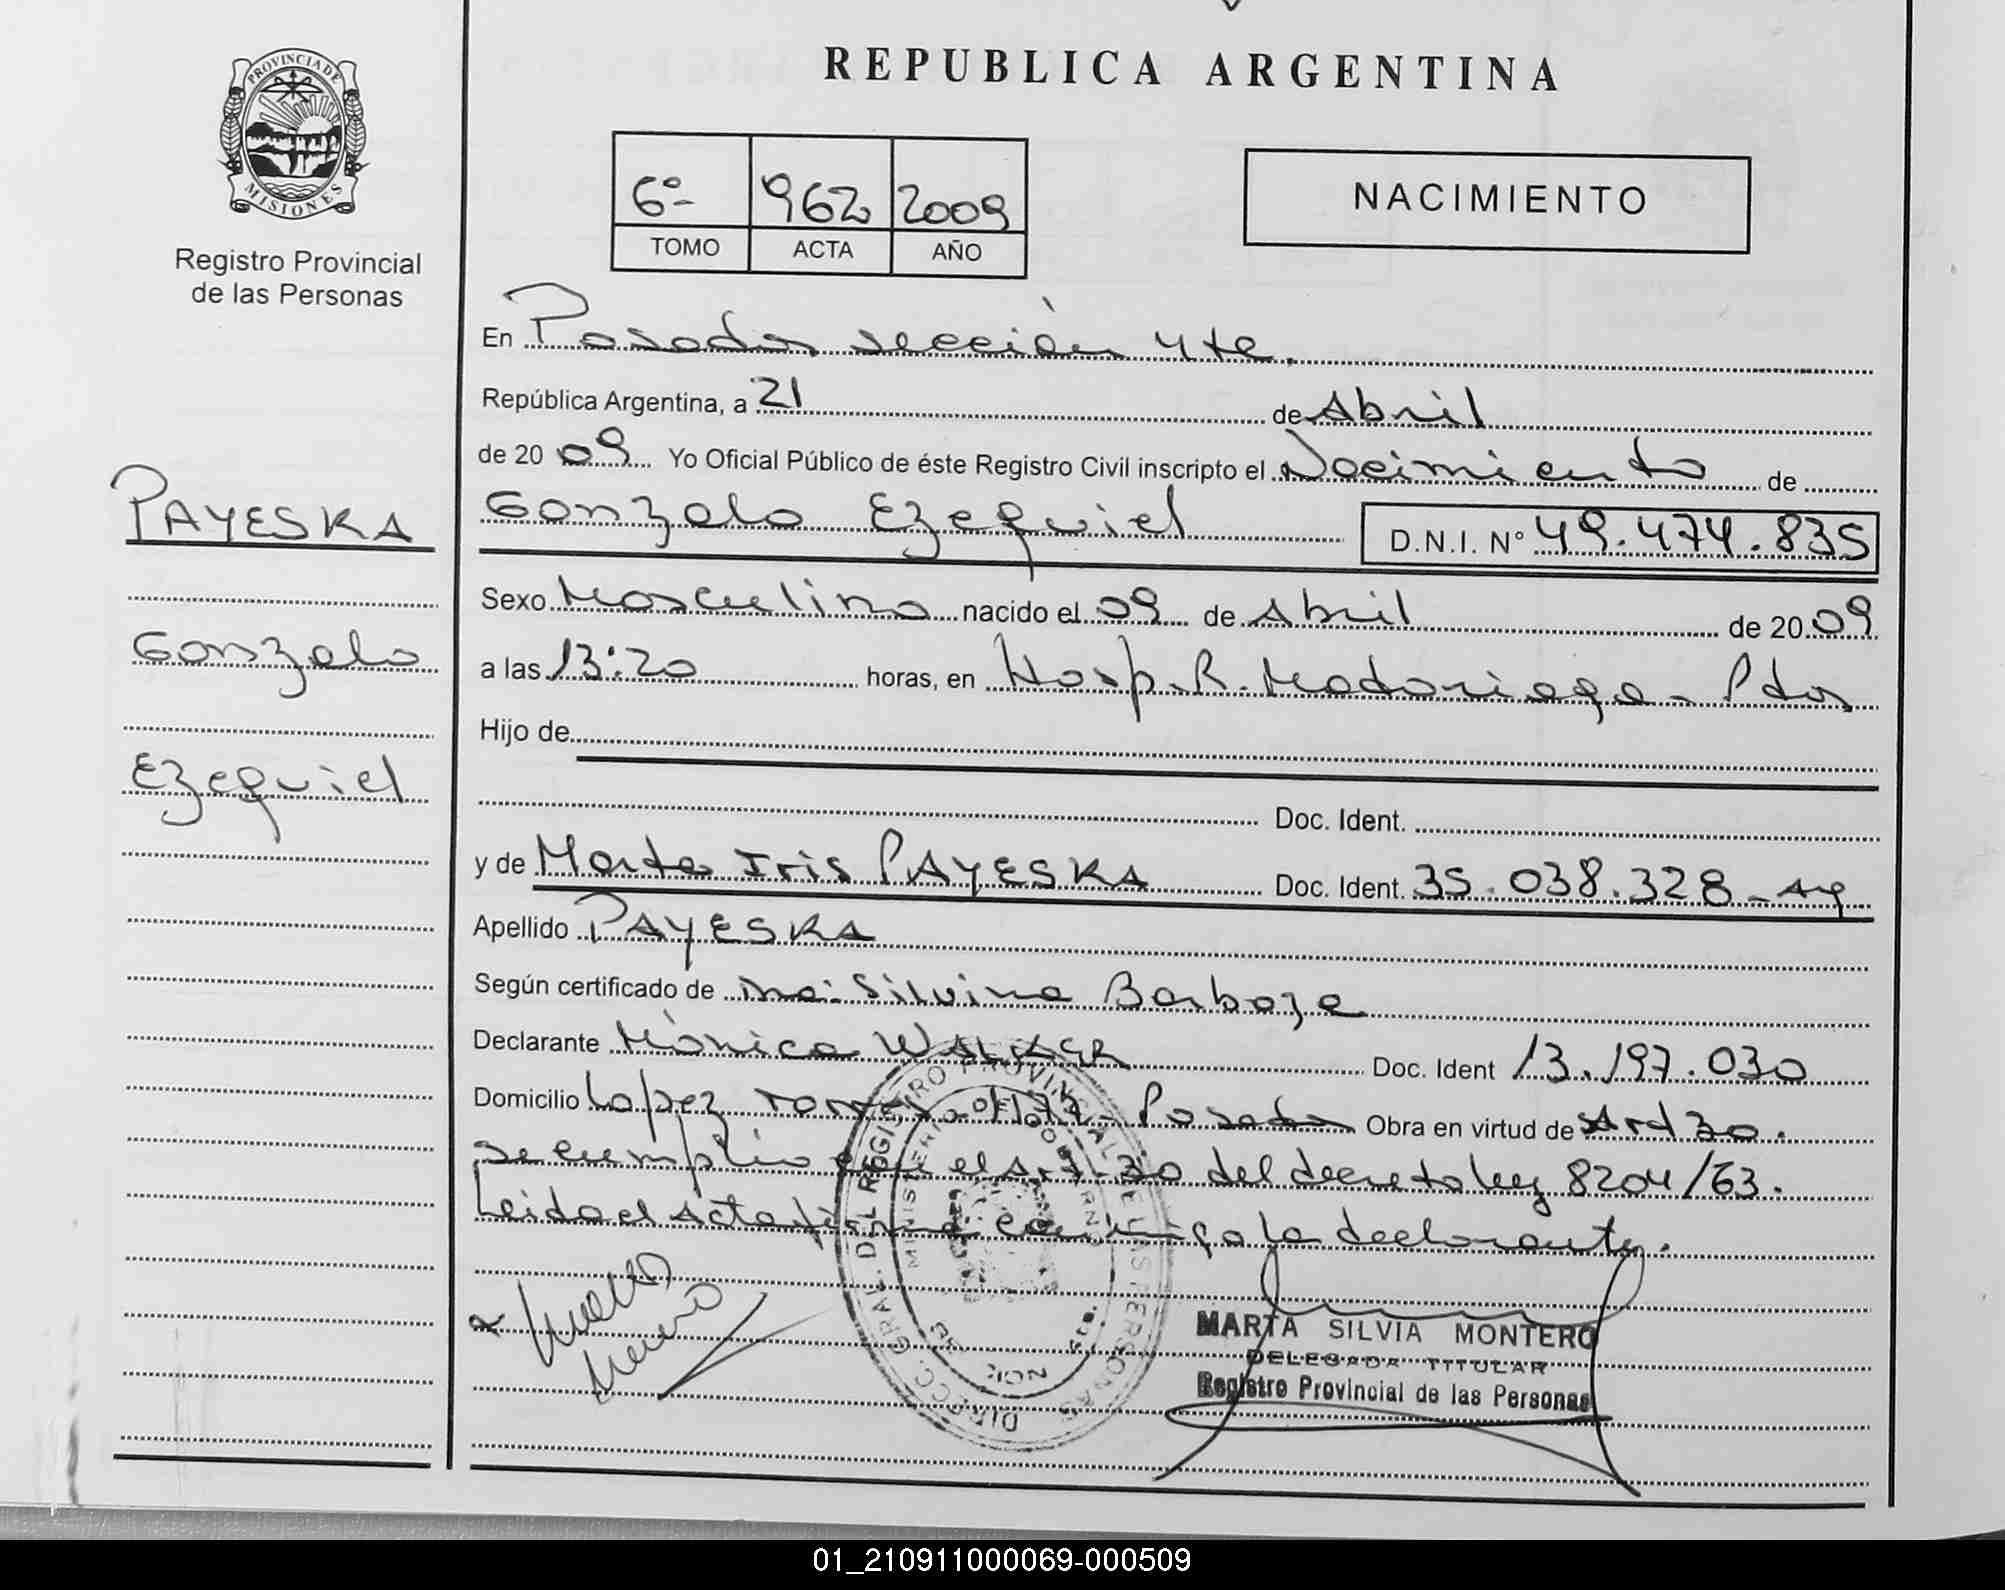 REPUBLICA ARGENTINA
PROVINCIA DE
MISIONES
Registro Provincial
de las Personas
6º 962 2009
TOMO ACTA AÑO
NACIMIENTO
En Posadas sección 4ta.
República Argentina, a 21 de Abril
de 2009 Yo Oficial Público de éste Registro Civil inscripto el Nacimiento de
Gonzalo Ezequiel D.N.I. Nº 49.474.835
Sexo Masculino nacido el 09 de Abril de 2009
a las 13:20 horas, en Hosp. R. Madariaga - Pdas
Hijo de
Doc. Ident.
y de Marta Iris PAYESKA Doc. Ident. 35.038.328 - Ag
Apellido PAYESKA
Según certificado de Silvina Barboza
Declarante Mónica Doc. Ident 13.197.030
Domicilio Lopez Torres Posadas Obra en virtud de Art 30.
se cumplio con el Art. 30 del decreto ley 8204/63.
Leida el Acta firma conmigo la declarante.
PAYESKA
Gonzalo
Ezequiel
DIRECC. GRAL. DEL REGISTRO PROVINCIAL DE LAS PERSONAS
MINISTERIO DE GOBIERNO
MARTA SILVIA MONTERO
DELEGADA TITULAR
Registro Provincial de las Personas
01_210911000069-000509